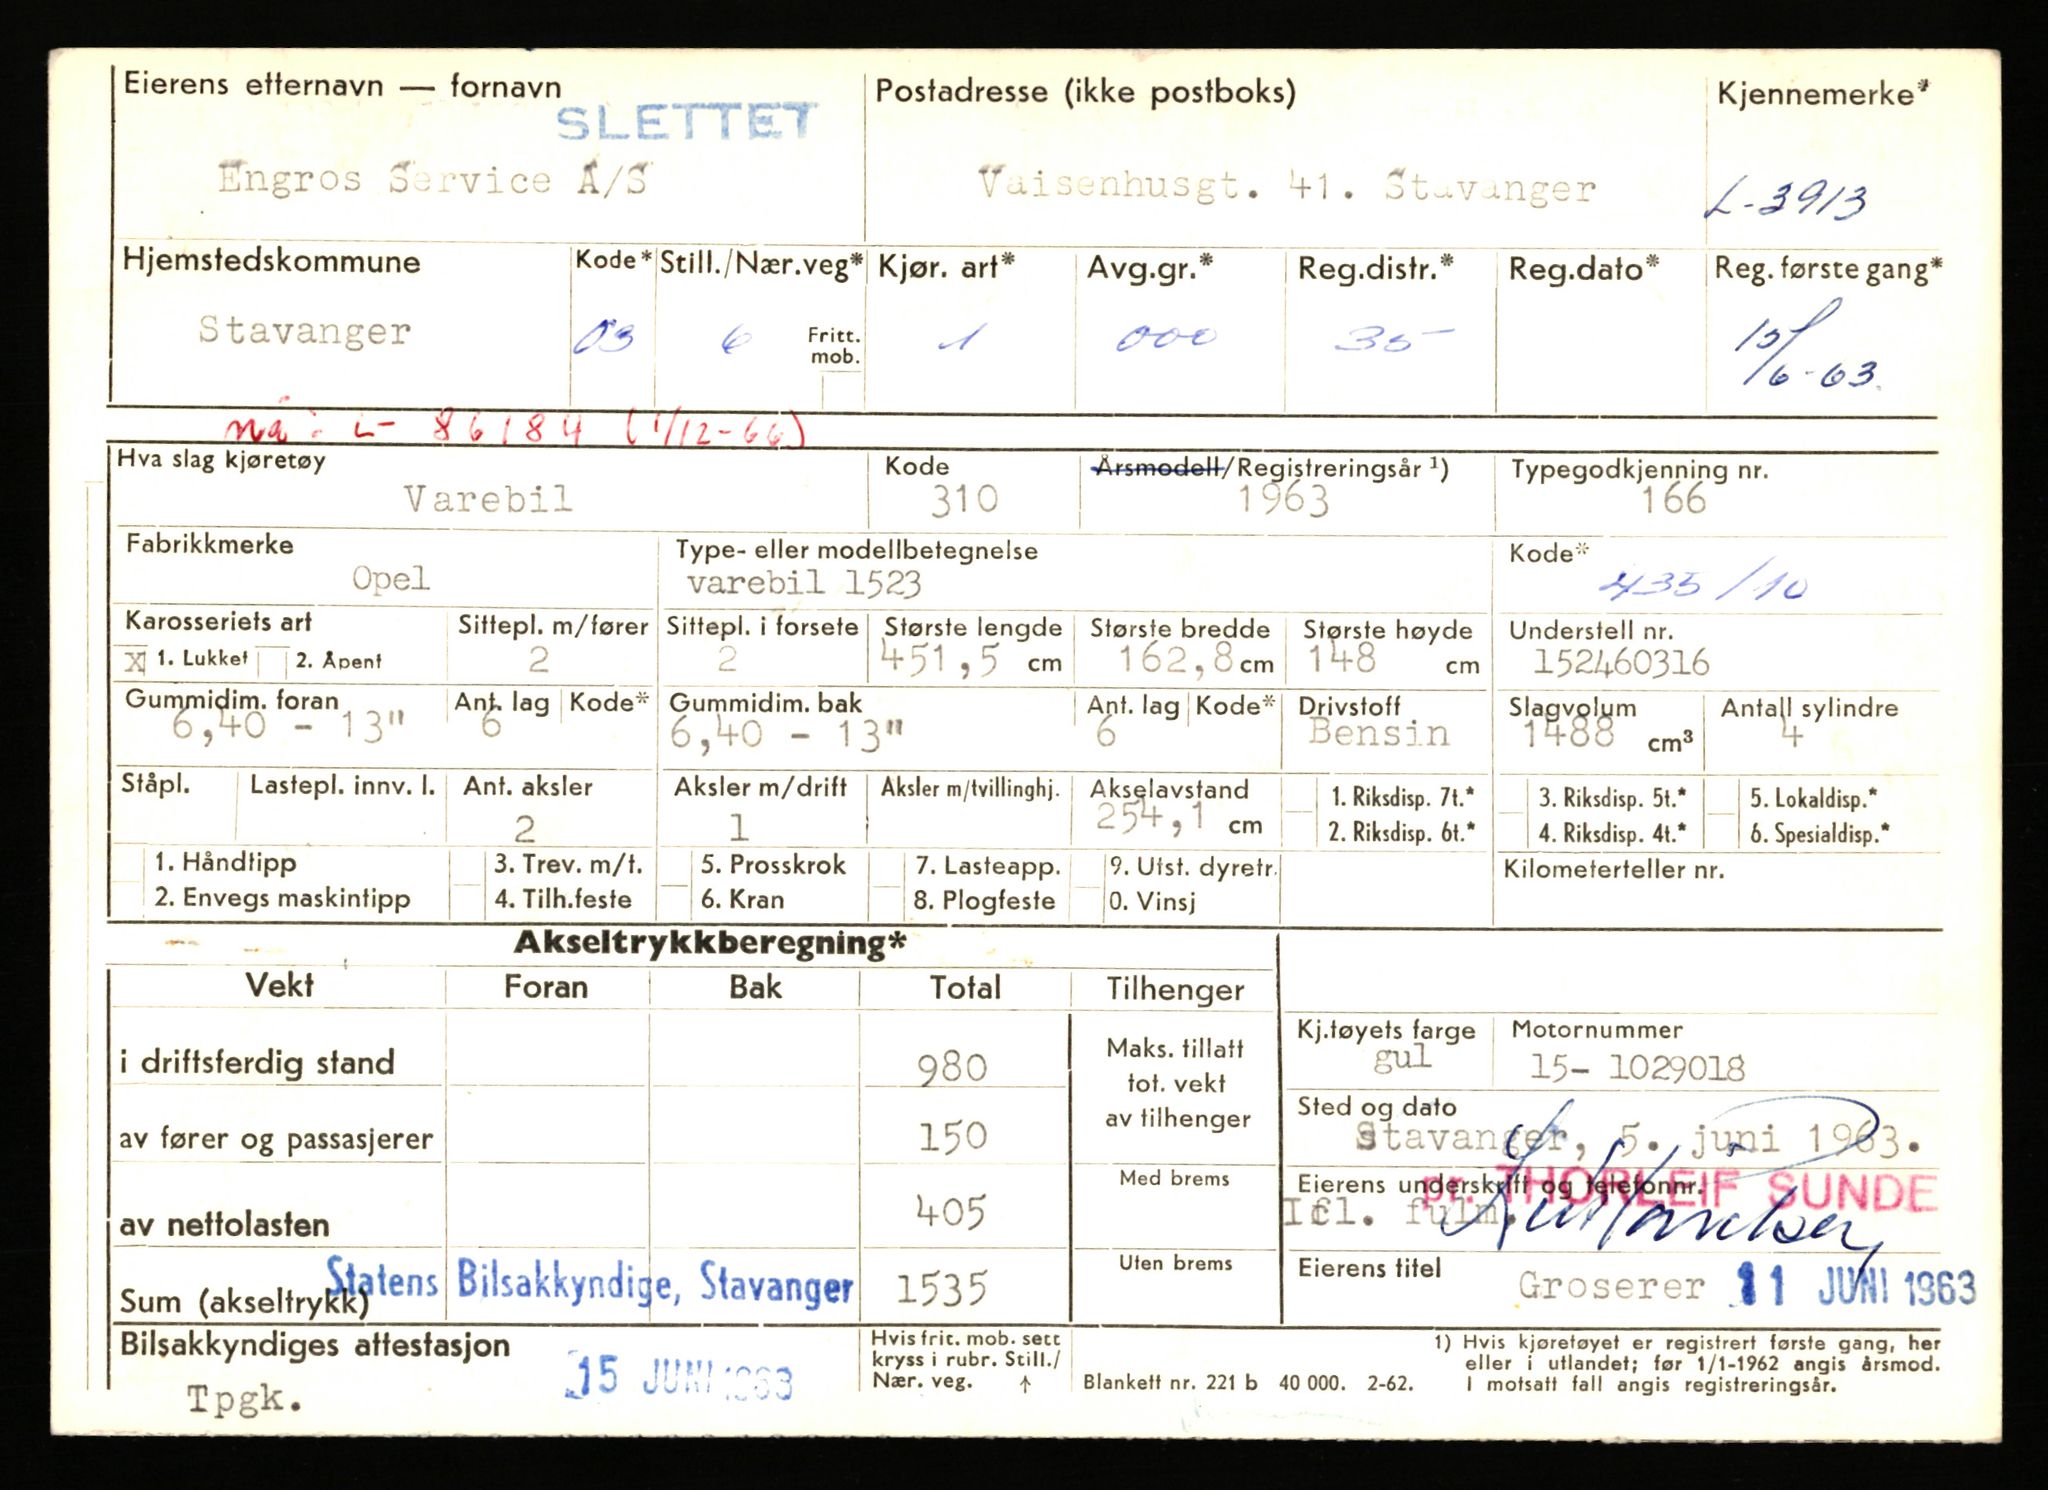 Eierens etternavn — fornavn
SLETTET
Postadresse (ikke postboks)
Kjennemerke*
Engros Service A/S
Vaisenhusgt. 41. Stavanger
L-3913
Hjemstedskommune Kode* Still./Nær.veg* Kjør. art* Avg.gr.* Reg.distr.* Reg.dato* Reg. første gang*
Stavanger 03 6 Fritt. mob. 1 000 35 15/6-63.
nå: L- 86184 (1/12-66)
Hva slag kjøretøy Kode Årsmodell/Registreringsår ¹) Typegodkjenning nr.
Varebil 310 1963 166
Fabrikkmerke Type- eller modellbetegnelse Kode*
Opel varebil 1523 435/10
Karosseriets art Sittepl. m/fører Sittepl. i forsete Største lengde Største bredde Største høyde Understell nr.
X 1. Lukket 2. Åpent 2 2 451,5 cm 162,8 cm 148 cm 152460316
Gummidim. foran Ant. lag Kode* Gummidim. bak Ant. lag Kode* Drivstoff Slagvolum Antall sylindre
6,40 - 13" 6 6,40 - 13" 6 Bensin 1488 cm³ 4
Ståpl. Lastepl. innv. l. Ant. aksler Aksler m/drift Aksler m/tvillinghj. Akselavstand 1. Riksdisp. 7t.* 3. Riksdisp. 5t.* 5. Lokaldisp.*
2 1 254,1 cm 2. Riksdisp. 6t.* 4. Riksdisp. 4t.* 6. Spesialdisp.*
1. Håndtipp 3. Trev. m/t. 5. Prosskrok 7. Lasteapp. 9. Utst. dyretr. Kilometerteller nr.
2. Envegs maskintipp 4. Tilh.feste 6. Kran 8. Plogfeste 0. Vinsj
Akseltrykkberegning*
Vekt Foran Bak Total Tilhenger
i driftsferdig stand 980
Maks. tillatt
tot. vekt
av tilhenger
Kj.tøyets farge Motornummer
gul 15- 1029018
av fører og passasjerer 150
Sted og dato
Stavanger, 5. juni 1963.
Med brems
Eierens underskrift og telefonnr.
pr. THORLEIF SUNDE
Ifl. fulm.
av nettolasten 405
Uten brems
Eierens titel
Groserer 11 JUNI 1963
Statens Bilsakkyndige, Stavanger
Sum (akseltrykk) 1535
Bilsakkyndiges attestasjon
Tpgk.
15 JUNI 1963
Hvis frit. mob. sett
kryss i rubr. Still./
Nær. veg. ↑
Blankett nr. 221 b 40 000. 2-62.
1) Hvis kjøretøyet er registrert første gang, her
eller i utlandet; før 1/1-1962 angis årsmod.
I motsatt fall angis registreringsår.